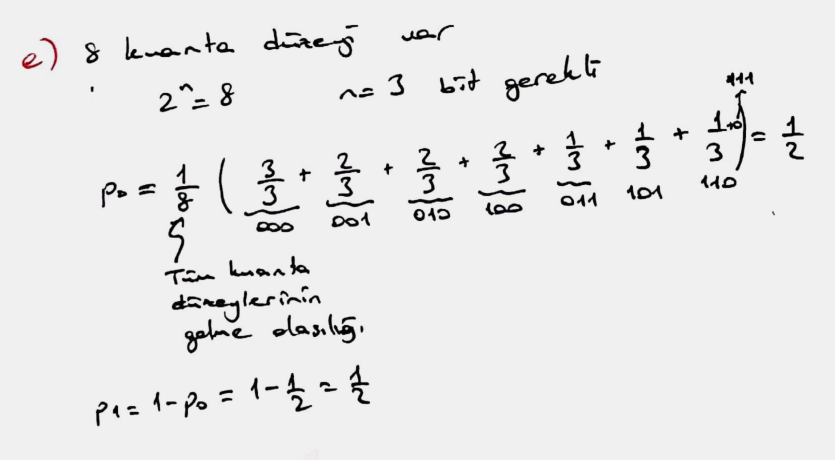 e) 8 kuanta düzeyi var
2^n = 8 n = 3 bit gerekli
p0 = 1/8 ( 3/3 + 2/3 + 2/3 + 2/3 + 1/3 + 1/3 + 1/3 + 0 ) = 1/2
000 001 010 100 011 101 110 111
Tüm kuanta
düzeylerinin
gelme olasılığı.
p1 = 1 - p0 = 1 - 1/2 = 1/2